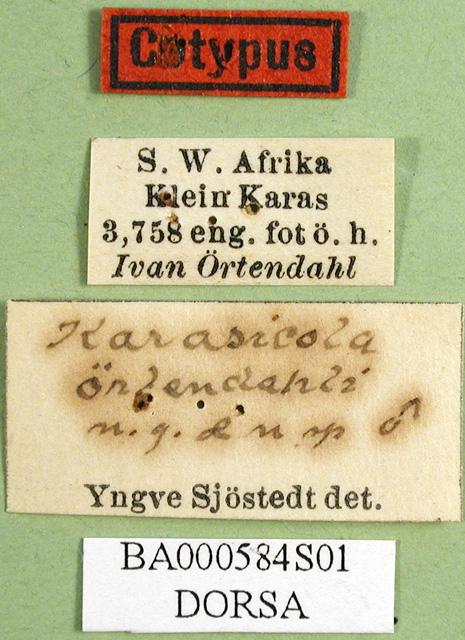 Cotypus
S. W. Afrika
Klein Karas
3,758 eng. fot ö. h.
Ivan Örtendahl
Karasicola
örtendahli
n. g. & n sp ♂
Yngve Sjöstedt det.
BA000584S01
DORSA